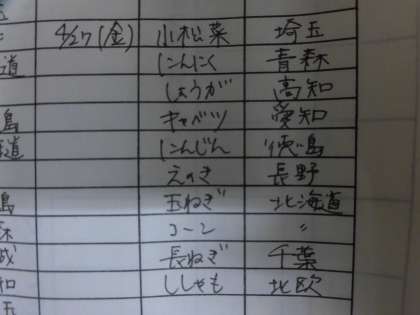 4/27(金) 小松菜 埼玉
道 にんにく 青森
しょうが 高知
島 キャベツ 愛知
道 にんじん 徳島
えのき 長野
島 玉ねぎ 北海道
コーン 〃
城 長ねぎ 千葉
知 ししゃも 北欧
玉